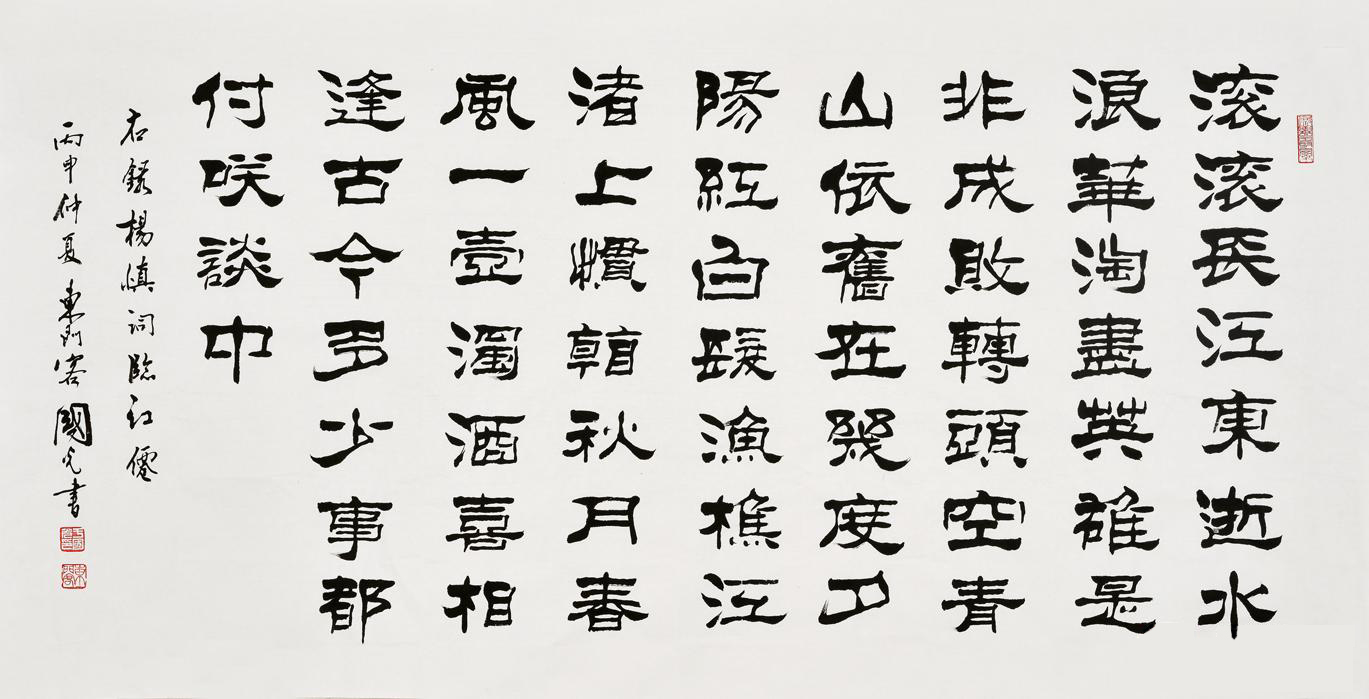 滚滚長江東逝水
浪華淘盡英雄是
非成敗轉頭空青
山依舊在幾度夕
陽紅白髮漁樵江
渚上慣看秋月春
風一壺濁酒喜相
逢古今多少事都
付咲談中
右錄楊慎詞臨江僊
丙申仲夏東門客國光書